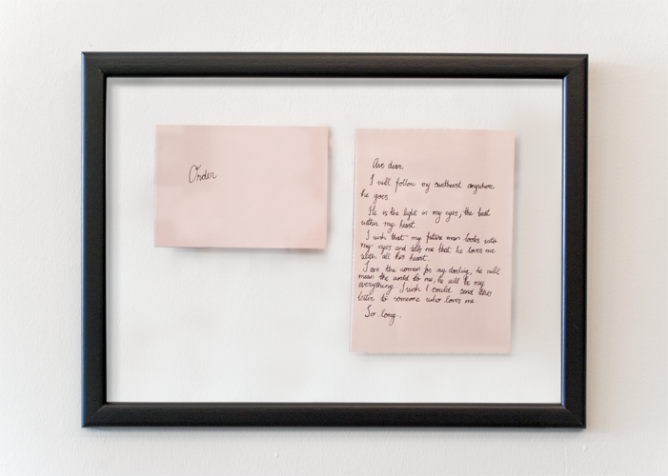 Order
Ave dear.
I will follow my sweetheart anywhere
he goes.
He is the light in my eyes, the beat
within my heart.
I wish that my future man looks into
my eyes and tells me that he loves me
with all his heart.
I am the woman for my darling, he will
mean the world to me, he will be my
everything. I wish I could send this
letter to someone who loves me.
So long.